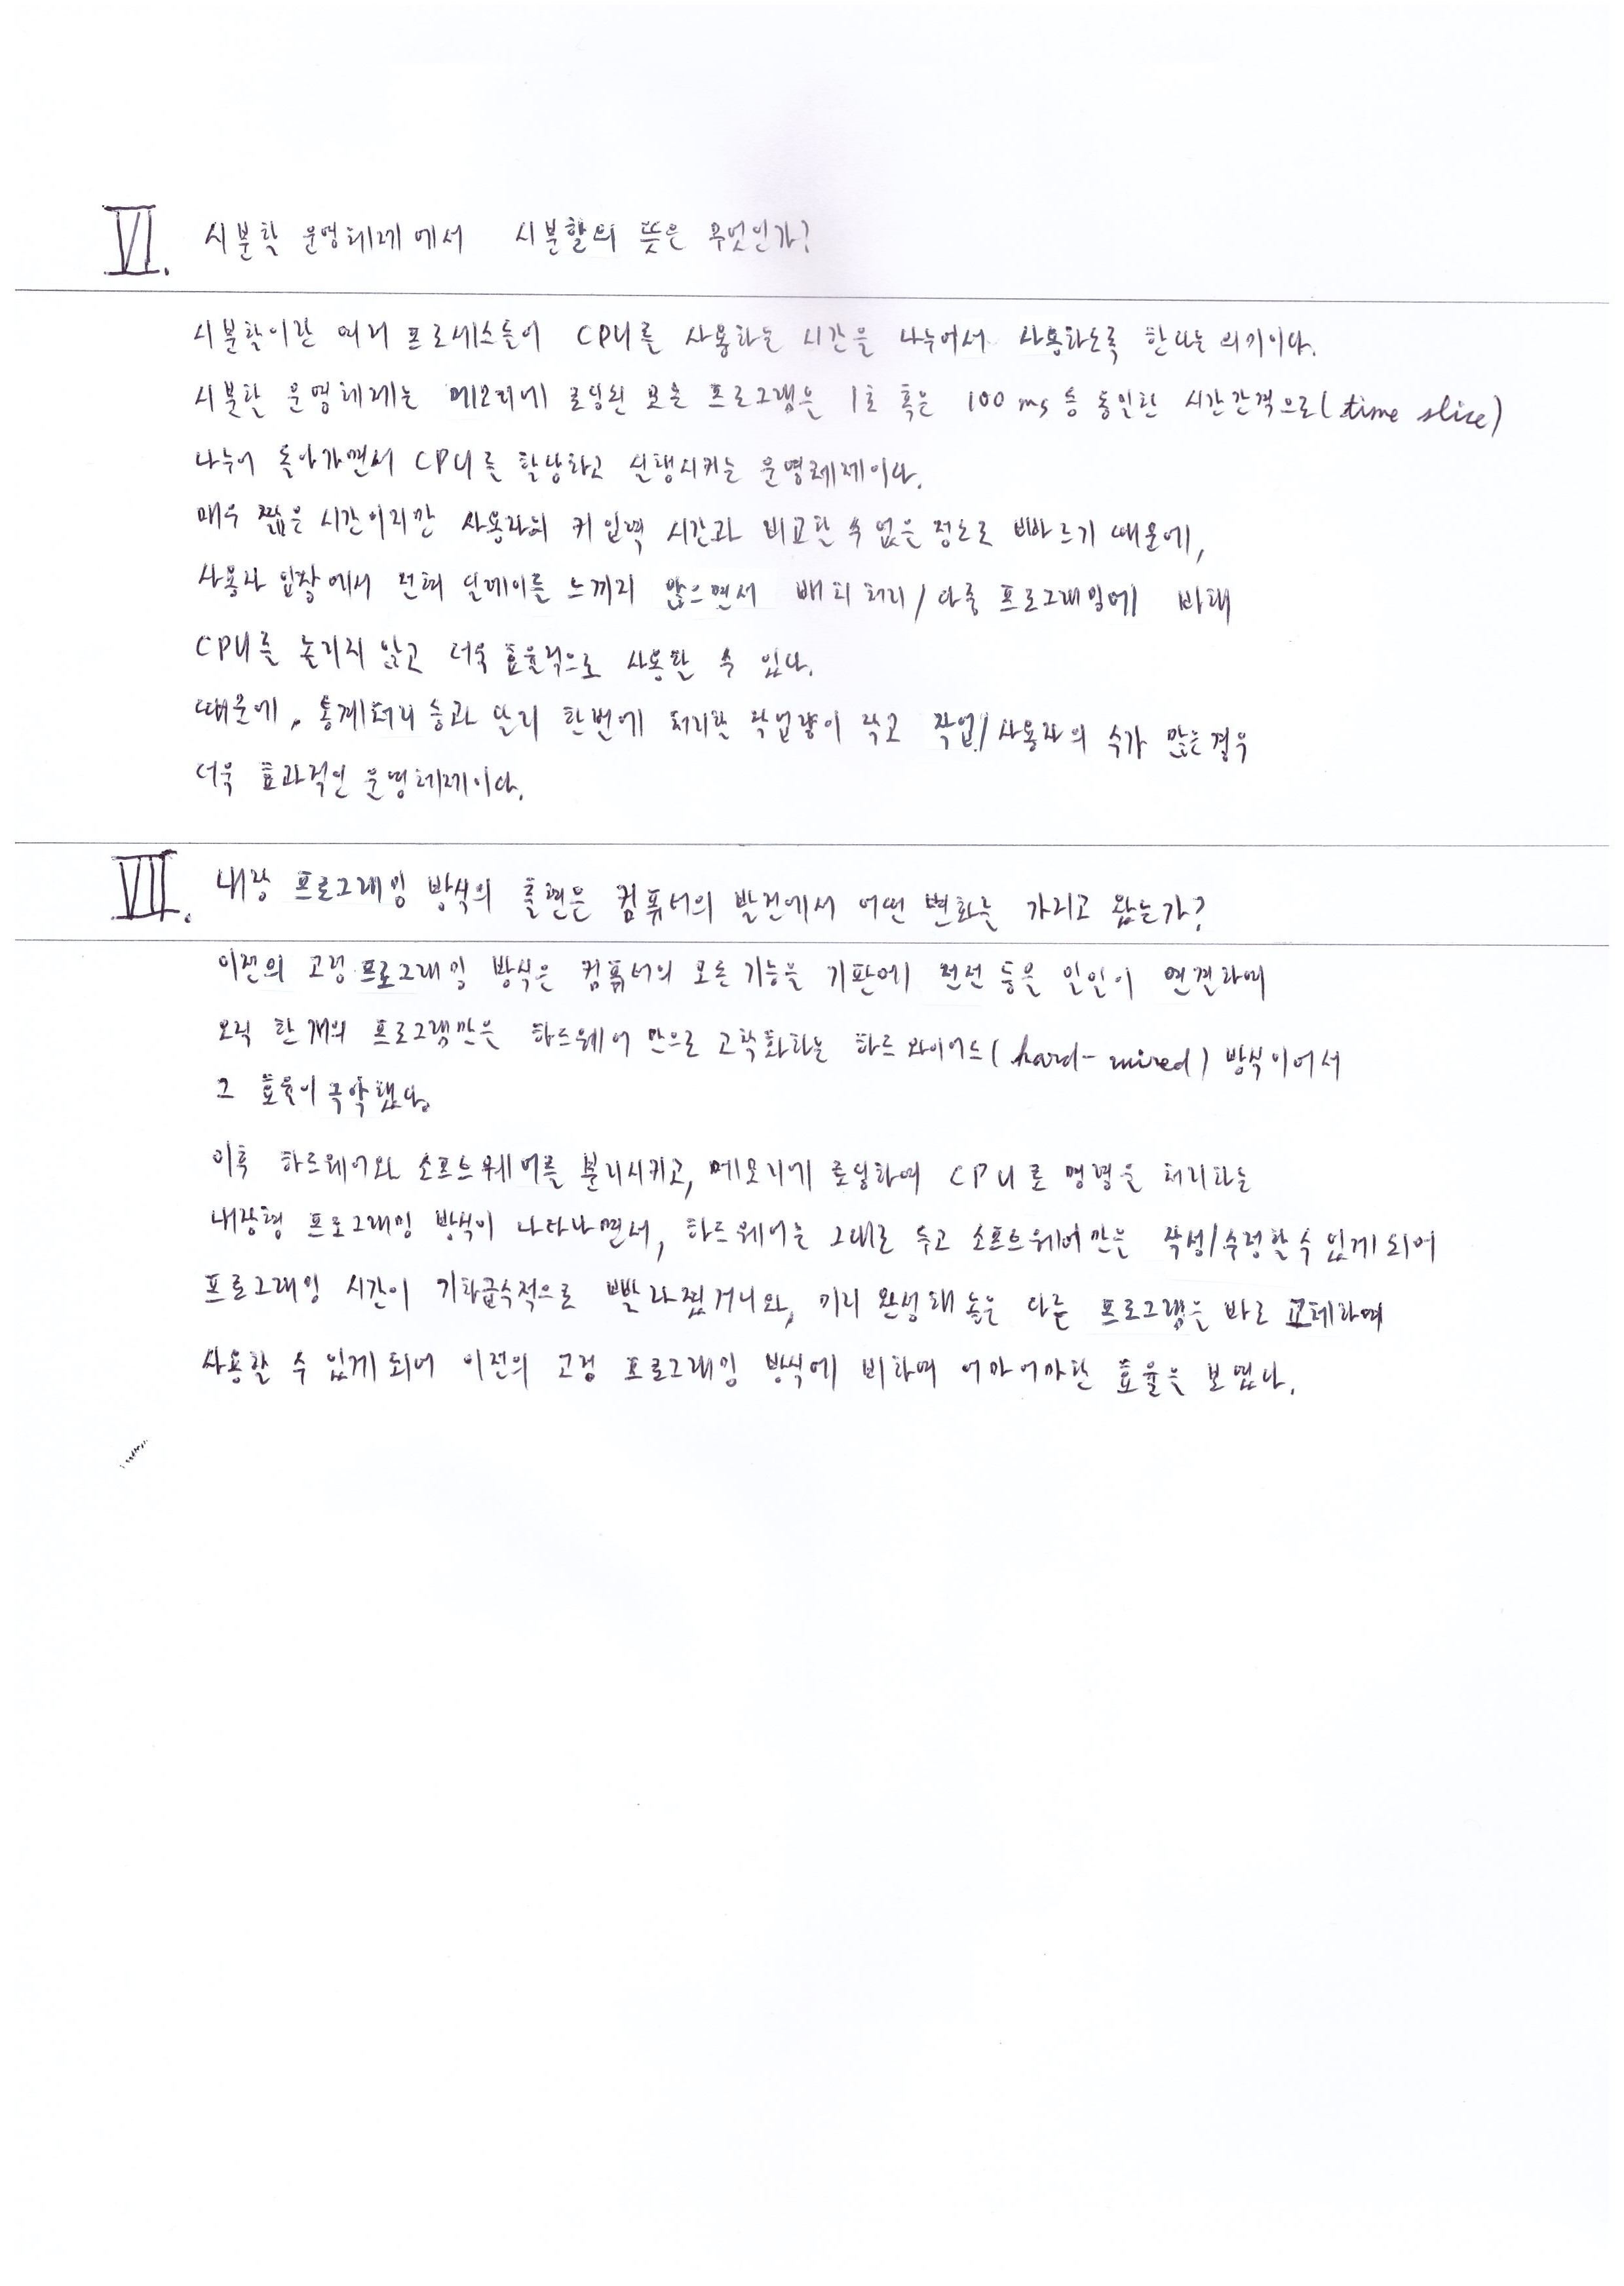 VI. 시분할 운영체제에서 시분할의 뜻은 무엇인가?
시분할이란 여러 프로세스들이 CPU를 사용하는 시간을 나누어서 사용하도록 한다는 의미이다.
시분할 운영체제는 메모리에 로딩된 모든 프로그램은 1초 혹은 100 ms 등 동일한 시간간격으로(time slice)
나누어 돌아가면서 CPU를 할당하고 실행시키는 운영체제이다.
매우 짧은 시간이지만 사용자의 키 입력 시간과 비교할 수 없을 정도로 빠르기 때문에,
사용자 입장에서 전혀 딜레이를 느끼지 않으면서 배치 처리/다중 프로그래밍에 비해
CPU를 놀리지 않고 더욱 효율적으로 사용할 수 있다.
때문에, 통계처리 등과 달리 한번에 처리할 작업량이 작고 작업/사용자의 수가 많은 경우
더욱 효과적인 운영체제이다.
VII. 내장 프로그래밍 방식의 출현은 컴퓨터의 발전에서 어떤 변화를 가지고 왔는가?
이전의 고정 프로그래밍 방식은 컴퓨터의 모든 기능을 기판에 전선 등을 일일이 연결하여
오직 한 개의 프로그램만을 하드웨어 만으로 고착화하는 하드 와이어드(hard-wired) 방식이어서
그 효율이 극악했다.
이후 하드웨어와 소프트웨어를 분리시키고, 메모리에 로딩하여 CPU로 명령을 처리하는
내장형 프로그래밍 방식이 나타나면서, 하드웨어는 그대로 두고 소프트웨어만을 작성/수정할 수 있게 되어
프로그래밍 시간이 기하급수적으로 빨라졌거니와, 미리 완성해 놓은 다른 프로그램을 바로 교체하여
사용할 수 있게 되어 이전의 고정 프로그래밍 방식에 비하여 어마어마한 효율을 보였다.